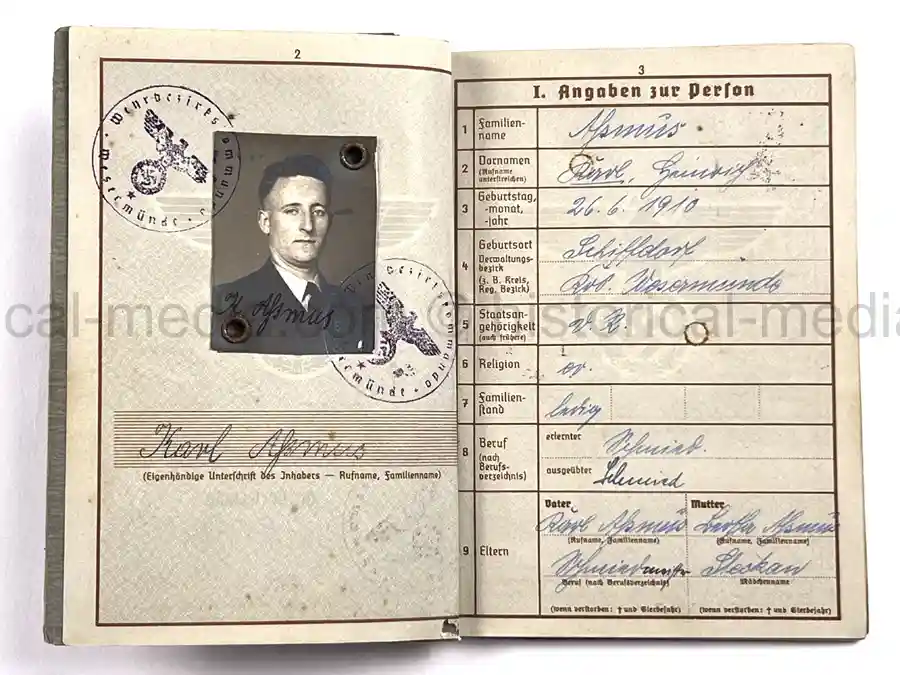 2
Wehrbezirkskommando
Wesermünde
K. Aßmus
Wehrbezirkskommando
Wesermünde
Karl Aßmus
(Eigenhändige Unterschrift des Inhabers — Rufname, Familienname)
3
I. Angaben zur Person
1 Familien-
name
Aßmus
2 Vornamen
(Rufname
unterstreichen)
Karl, Heinrich
3 Geburtstag,
-monat,
-jahr
26. 6. 1910
4 Geburtsort
Verwaltungs-
bezirk
(z. B. Kreis,
Reg. Bezirk)
Schiffdorf
Wesermünde
5 Staatsan-
gehörigkeit
(auch frühere)
D. R.
6 Religion
ev.
7 Familien-
stand
ledig
8 Beruf
(nach
Berufs-
verzeichnis)
erlernter
Schmied.
ausgeübter
Schmied
9 Eltern
Vater Mutter
Karl Aßmus Bertha Aßmus
(Rufname, Familienname) (Rufname, Familienname)
Schmiedemeister Steckan
Beruf (nach Berufsverzeichnis) Mädchenname
(wenn verstorben: † und Sterbejahr) (wenn verstorben: † und Sterbejahr)
cal-med .com © historical-media